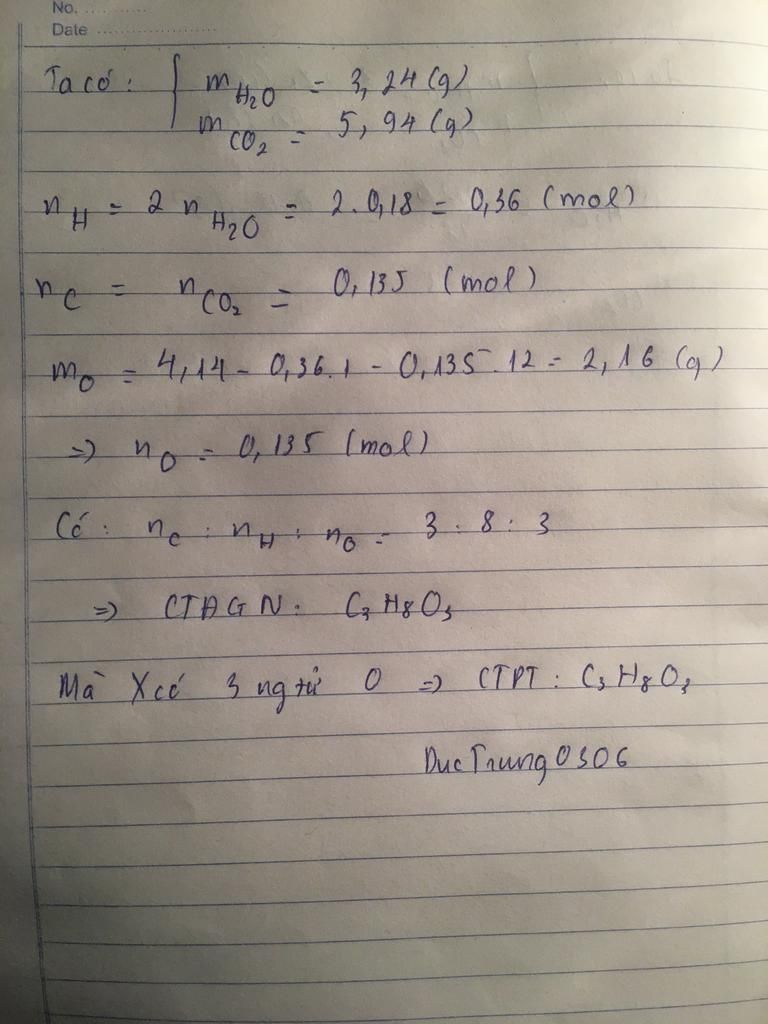 No. ..........
Date ......................
Ta có: { m H₂O = 3,24 (g)
m CO₂ = 5,94 (g)
n H = 2 n H₂O = 2.0,18 = 0,36 (mol)
n C = n CO₂ = 0,135 (mol)
m O = 4,14 - 0,36.1 - 0,135.12 = 2,16 (g)
=> n O = 0,135 (mol)
Có: n C : n H : n O = 3 : 8 : 3
=> CTĐGN: C₃H₈O₃
Mà X có 3 ng tử O => CTPT: C₃H₈O₃
DucTrung0306